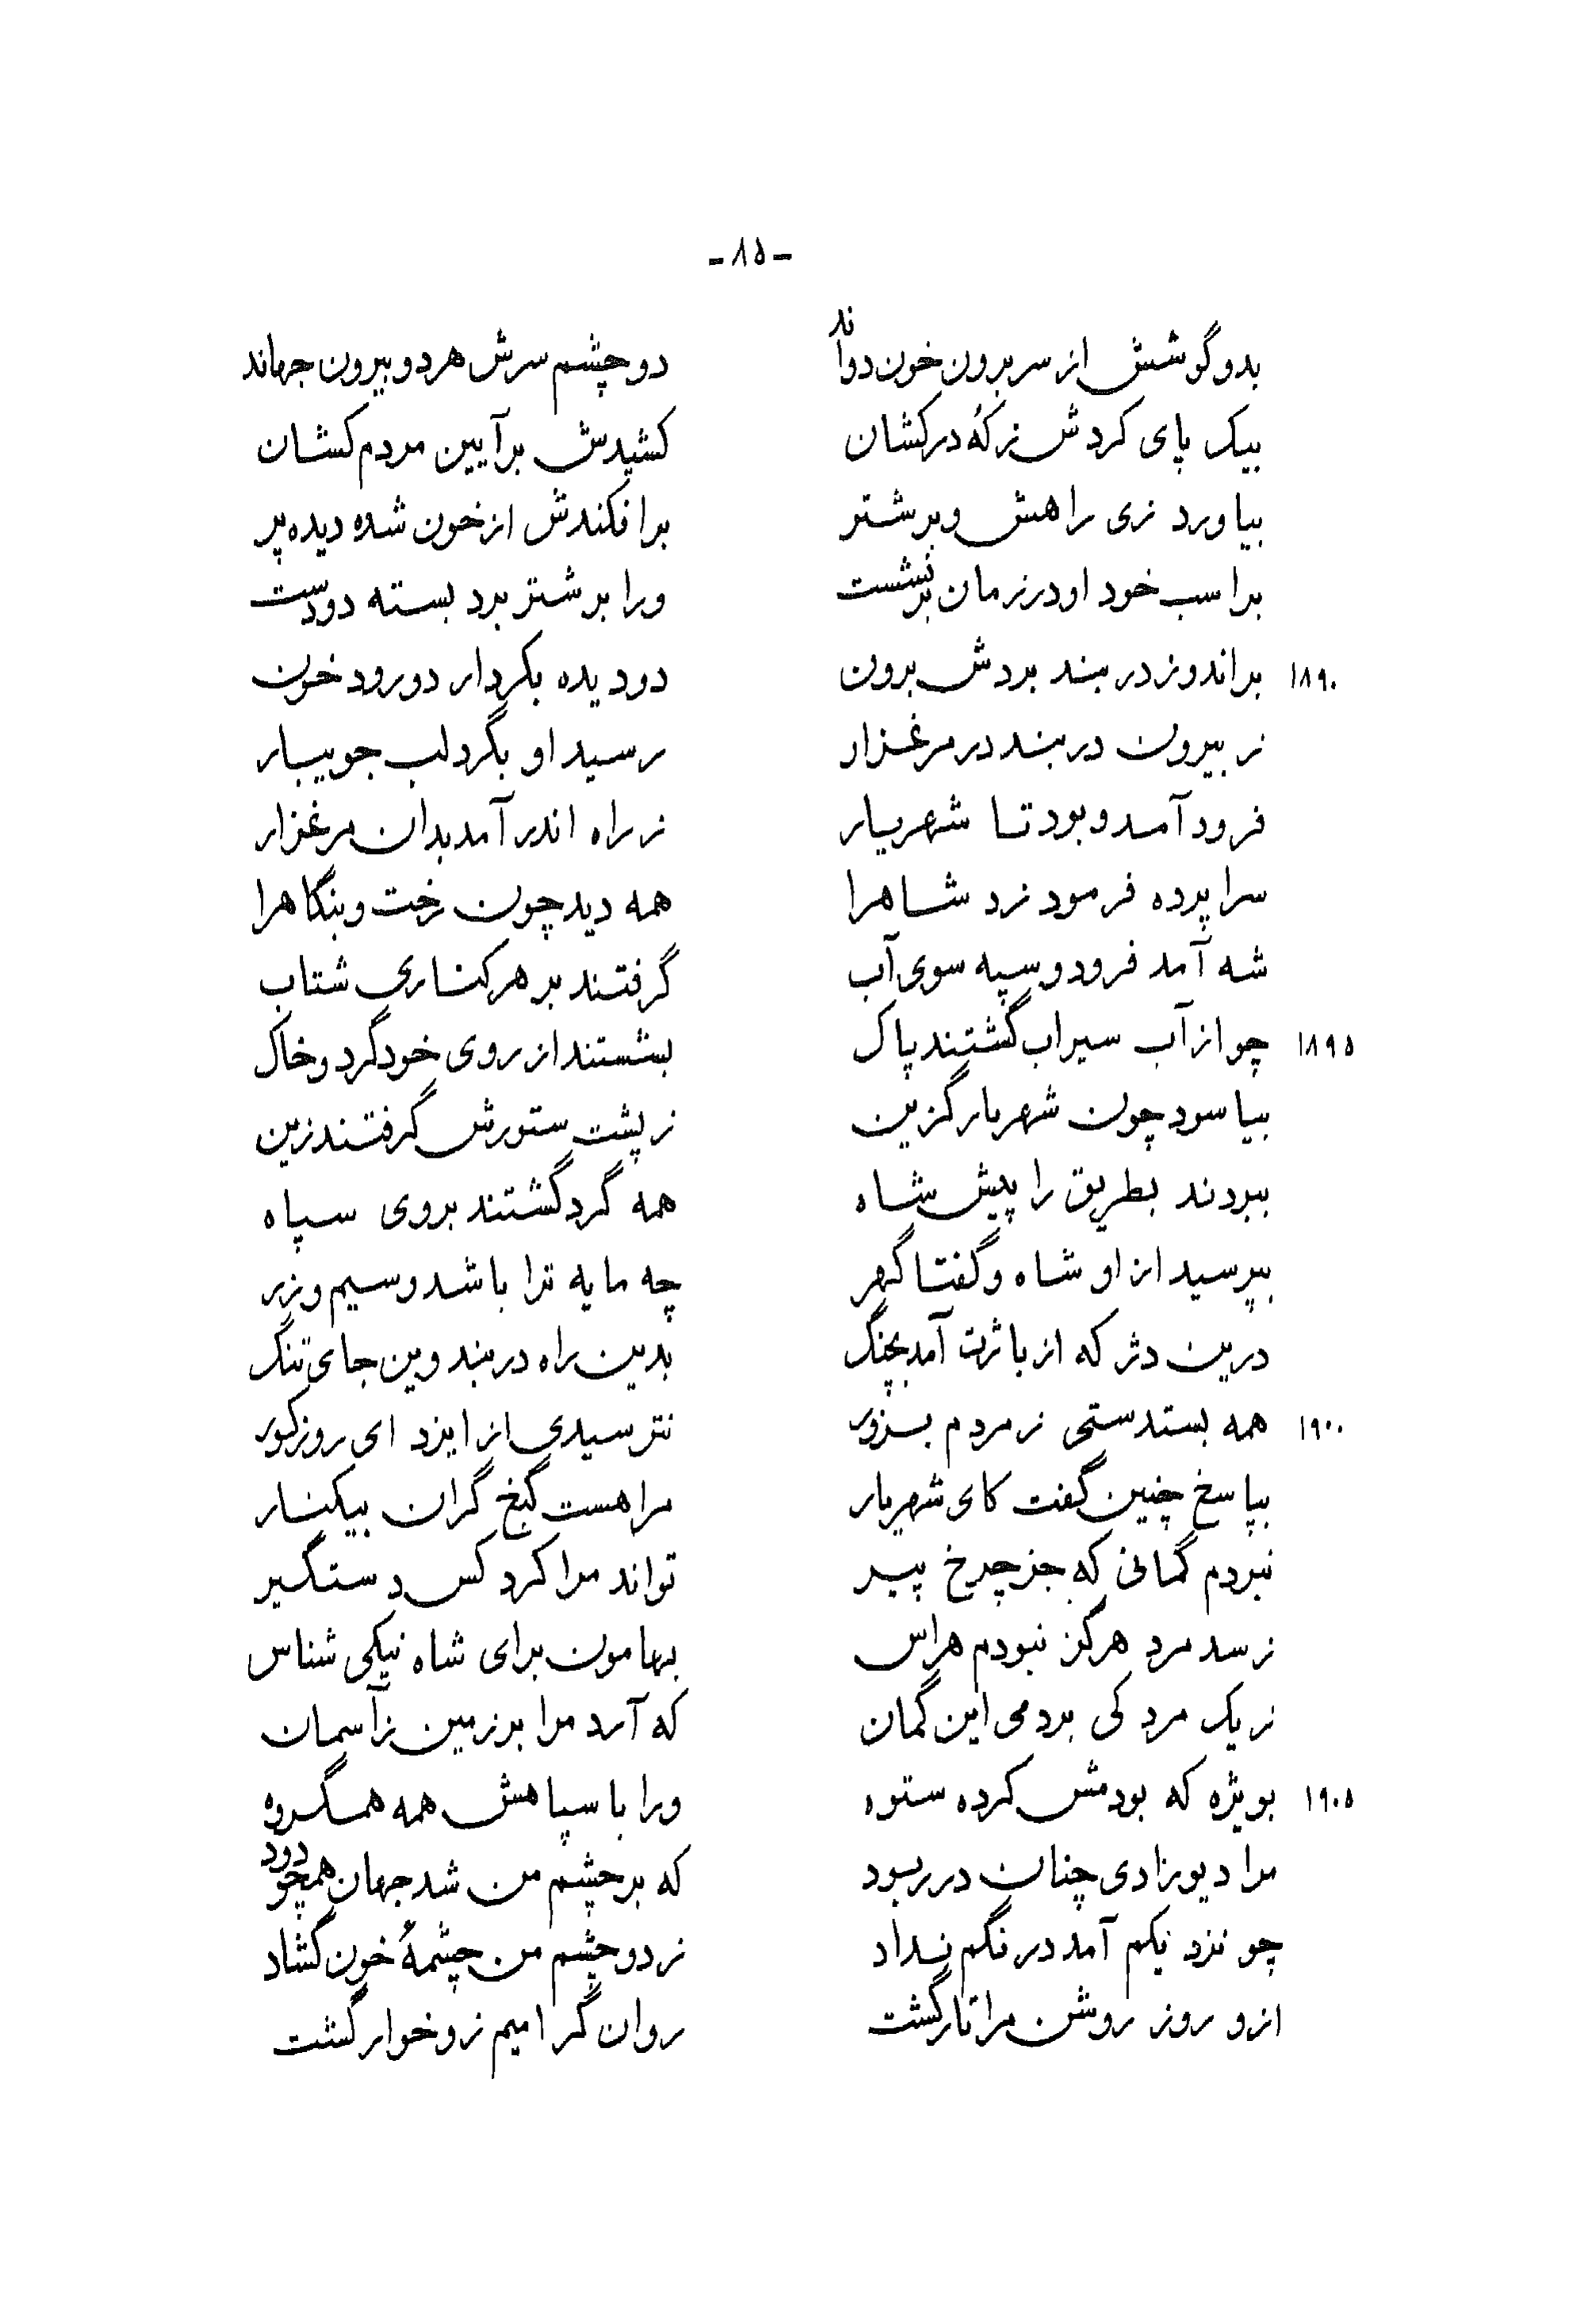 -۸۵-
بدو گوشش از سر برون خون دواند دو چشم سرش هر دو بیرون جهاند
بیک پای کردش ز که درکشان کشیدش بر آیین مردم کشان
بیاورد زی راهش و بر شتر برافکندش از خون شده دیده پر
بر اسب خود او در زمان برنشست ورا بر شتر برد بسته دو دست
۱۸۹۰ براند و ز دربند بردش برون دو دیده بکردار دو رود خون
ز بیرون دربند در مرغزار رسید او بگرد لب جویبار
فرود آمد و بود تا شهریار ز راه اندر آمد بدان مرغزار
سراپرده فرمود نزد شاه را همه دید چون رخت و بنگاه را
شه آمد فرود و سپه سوی آب گرفتند بر هر کناری شتاب
۱۸۹۵ چو از آب سیراب گشتند پاک بشستند از روی خود گرد و خاک
بیاسود چون شهریار گزین ز پشت ستورش گرفتند زین
ببردند بطریق را پیش شاه همه گرد گشتند بروی سپاه
بپرسید از او شاه و گفتا گهر چه مایه ترا باشد و سیم و زر
درین دژ که از باژت آمد بچنگ بدین راه دربند وین جای تنگ
۱۹۰۰ همه بستدستی ز مردم بزور نترسیدی از ایزد ای روز کور
بپاسخ چنین گفت کای شهریار مرا هست گنج گران بیکنار
نبردم گمانی که جز چرخ پیر تواند مرا کرد کس دستگیر
ز سد مرد هرگز نبودم هراس بهامون برای شاه نیکی شناس
ز یک مرد کی بردمی این گمان که آرد مرا بر زمین ز آسمان
۱۹۰۵ بویژه که بودمش کرده ستوه ورا با سپاهش همه همگروه
مرا دیوزادی چنان در ربود که بر چشم من شد جهان همچو دود
چو نزدیکم آمد درنگم نداد ز دو چشم من چشمهٔ خون گشاد
ازو روز روشن مرا تار گشت روان گرامیم زو خوار گشت